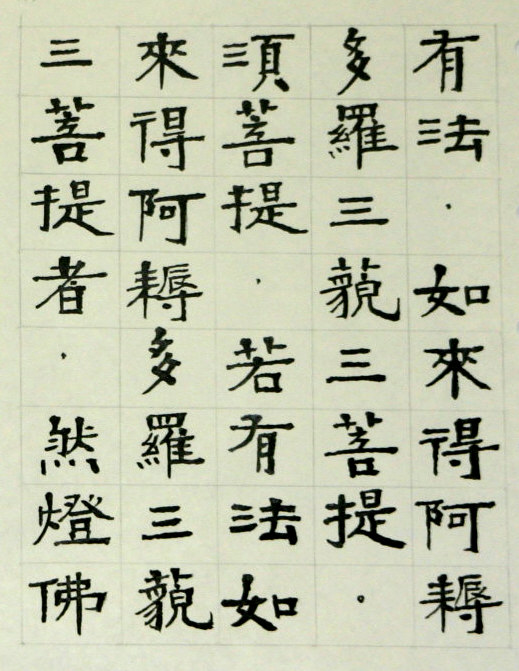 有法．如來得阿耨
多羅三藐三菩提．
須菩提．若有法如
來得阿耨多羅三藐
三菩提者．然燈佛